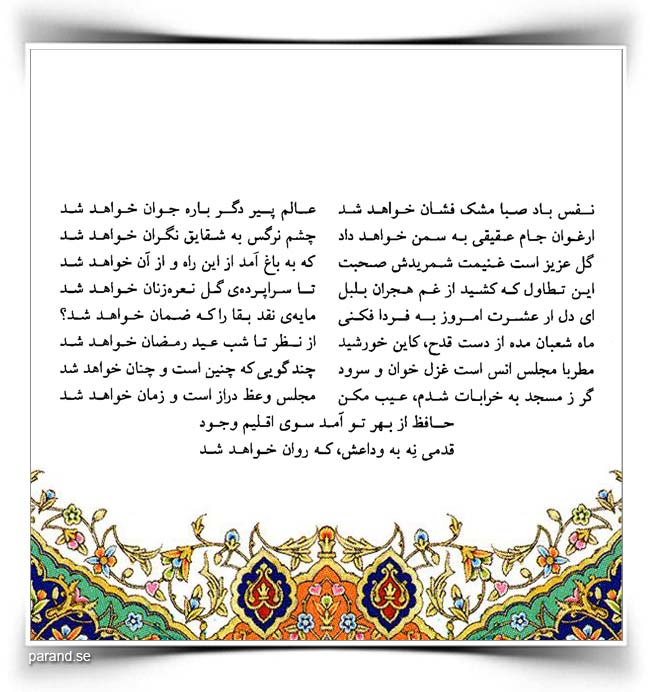 نفس باد صبا مشک فشان خواهد شد    عالم پیر دگر باره جوان خواهد شد
ارغوان جام عقیقی به سمن خواهد داد    چشم نرگس به شقایق نگران خواهد شد
گل عزیز است غنیمت شمریدش صحبت    که به باغ آمد از این راه و از آن خواهد شد
این تطاول که کشید از غم هجران بلبل    تا سراپرده‌ی گل نعره‌زنان خواهد شد
ای دل ار عشرت امروز به فردا فکنی    مایه‌ی نقد بقا را که ضمان خواهد شد؟
ماه شعبان مده از دست قدح، کاین خورشید    از نظر تا شب عید رمضان خواهد شد
مطربا مجلس انس است غزل خوان و سرود    چند گویی که چنین است و چنان خواهد شد
گر ز مسجد به خرابات شدم، عیب مکن    مجلس وعظ دراز است و زمان خواهد شد
حافظ از بهر تو آمد سوی اقلیم وجود
قدمی نِه به وداعش، که روان خواهد شد
parand.se